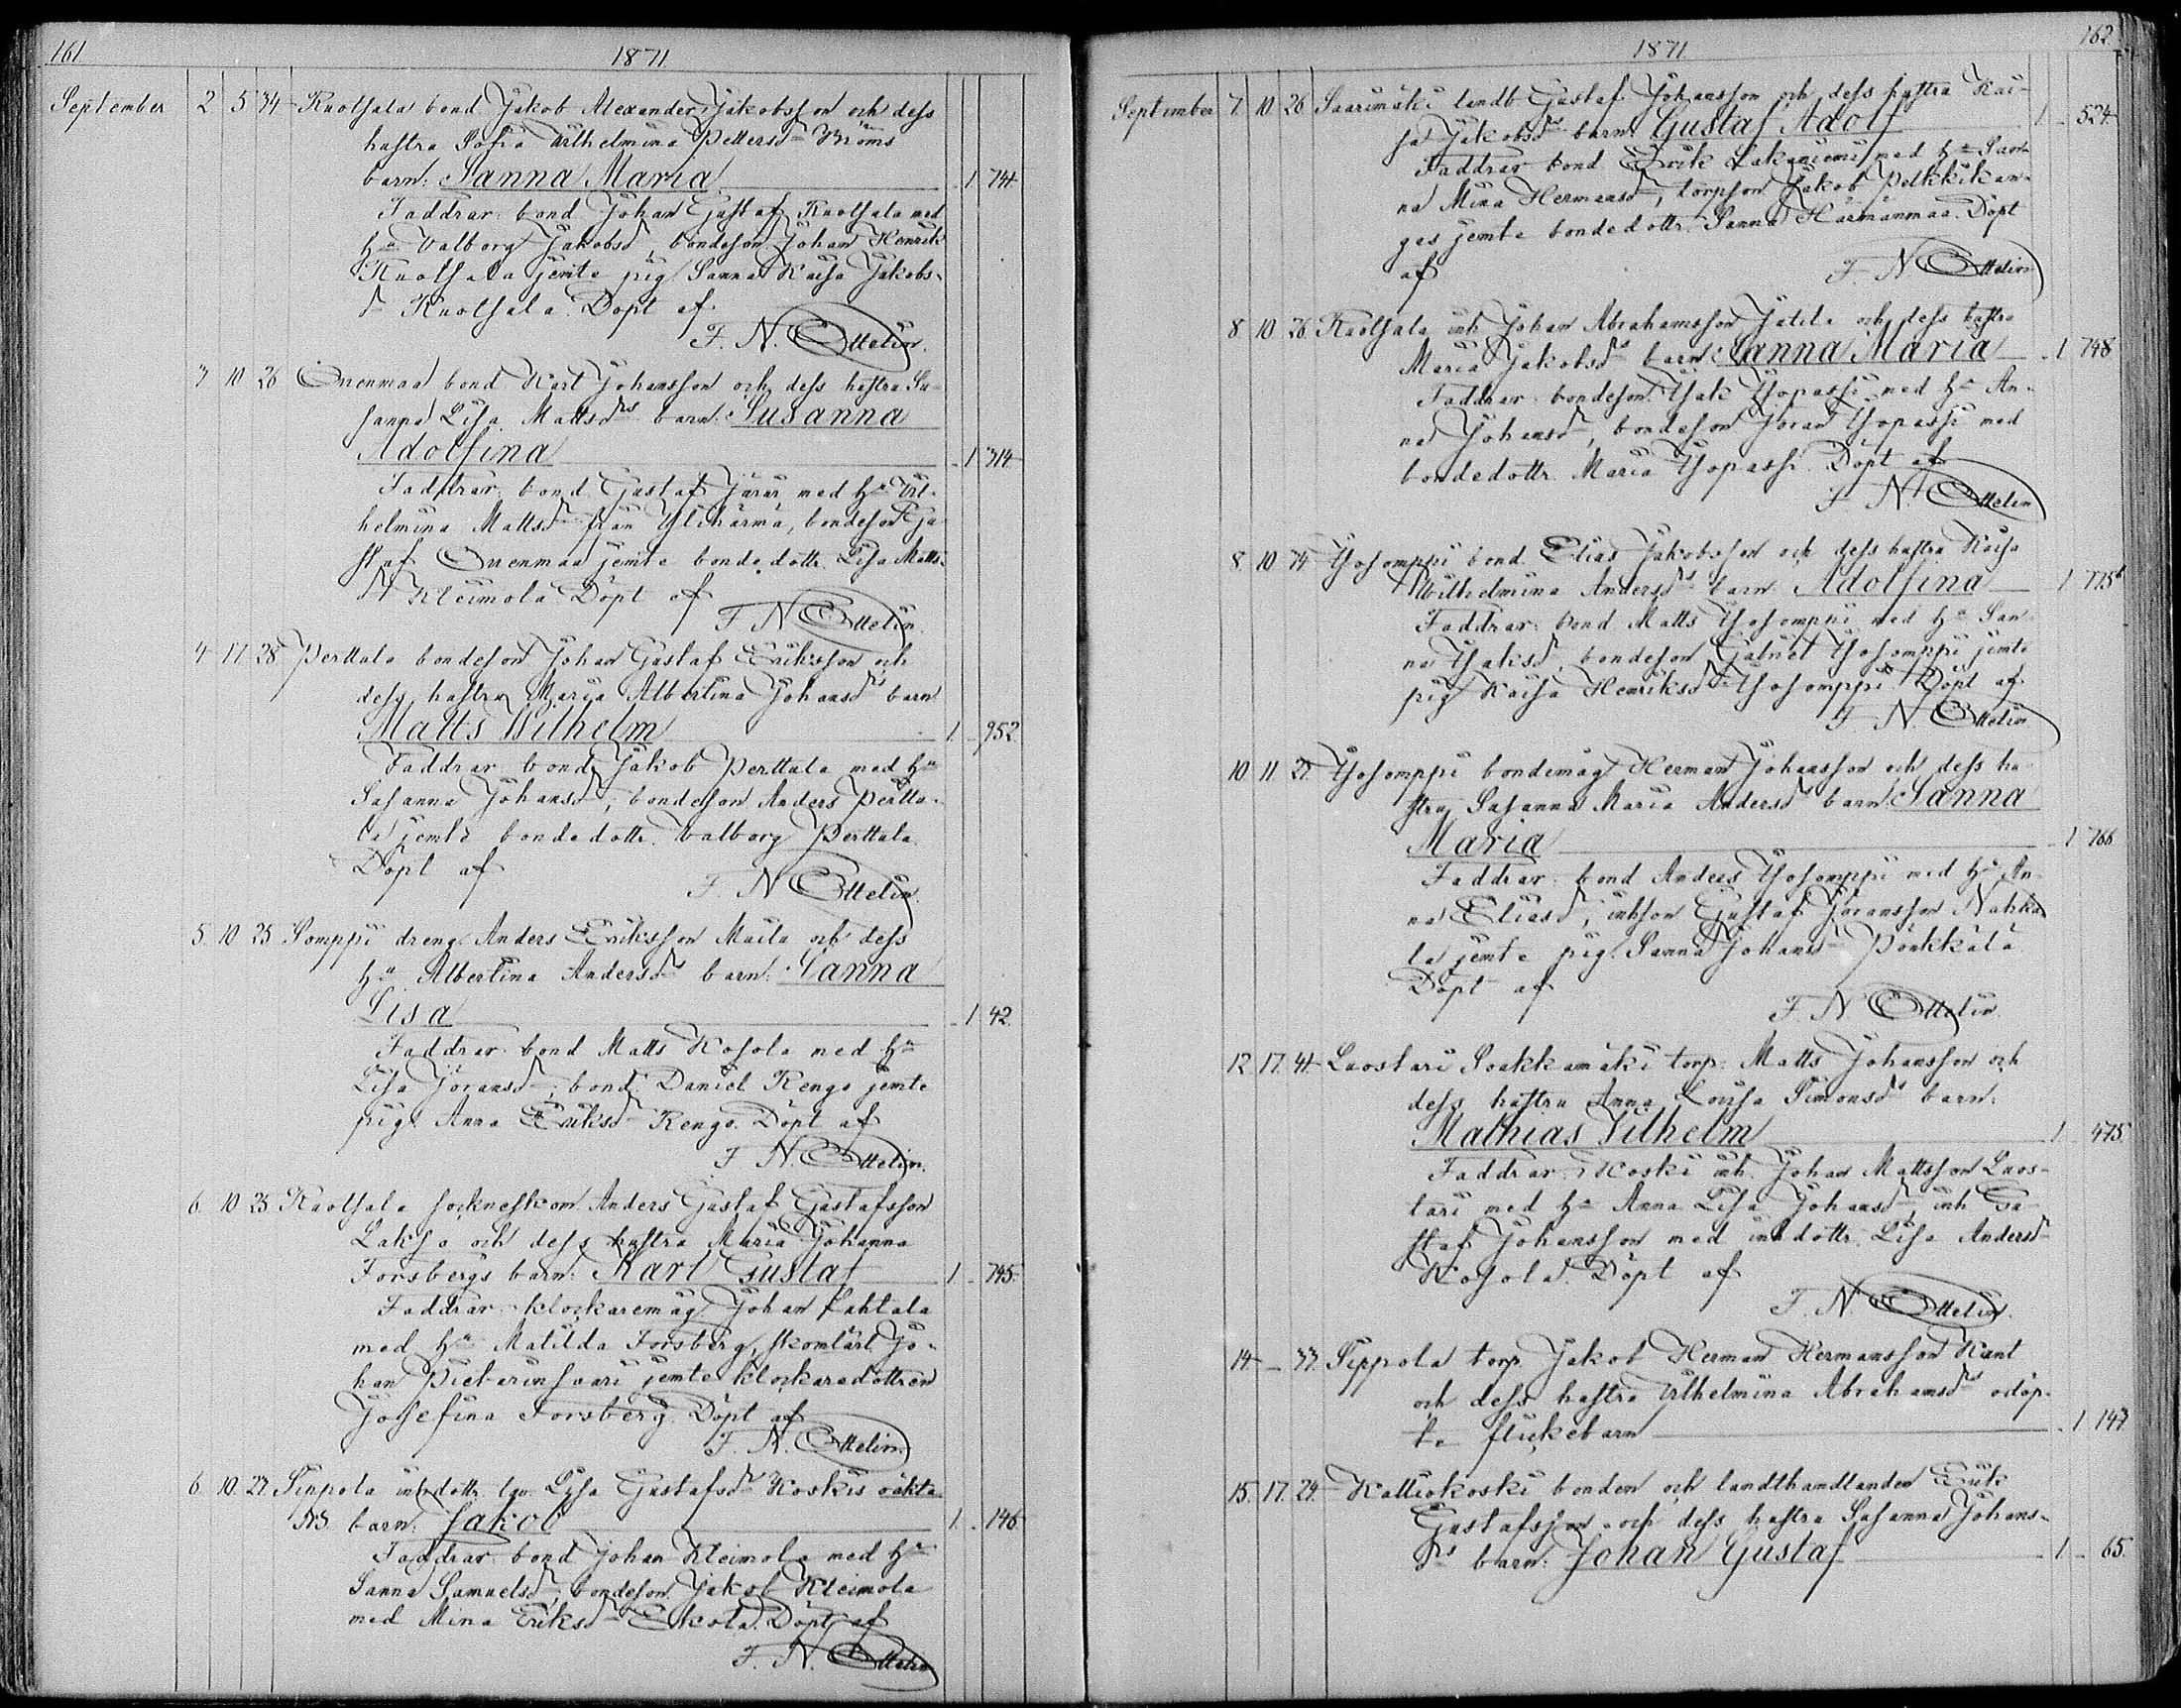 161
1871
September 2 5 34 Knothala bond. Jakob Alexander Jakobsson och dess
hustru Sofia Wilhelmina Pettersd
barn: Sanna Maria 1 744.
Faddrar: bond Johan Gustaf Knothala med
h Valborg Jakobsd, bondeson Johan Henrik
Knothala jemte pig Sanna Kaisa Jakobs-
d Knothala. Döpt af
F. N. Ottelin.
3 10 26 Orrenmaa bond Karl Johansson och dess hustru Su-
sanna Lisa Mattsds barn: Susanna
Adolfina 1 314.
Faddrar: bond Gustaf Järär med h Vil-
helmina Mattsd från Ylihärmä, bondeson Gu-
staf Orrenmaa jemte bondedottr. Lisa Matts-
d Kleimola Döpt af
F N Ottelin.
4 17 28 Perttala bondeson Johan Gustaf Eriksson och
dess hustru Maria Albertina Johansds barn
Matts Wilhelm 1. 952.
Faddrar bond Jakob Perttala med h
Susanna Johansd, bondeson Anders Pertta-
la jemte bondedottr. Valborg Perttala.
Döpt af
F. N Ottelin.
5. 10 25 Somppi dreng Anders Eriksson Maila och dess
h Albertina Andersds barn: Sanna
Lisa 1 42.
Faddrar: bond Matts Kosola med h
Lisa Göransd, bond. Daniel Rengo jemte
pig. Anna Eriksd Rengo. Döpt af
F N. Ottelin.
6. 10 25 Knothala sockneskom Anders Gustaf Gustafsson
Lakso och dess hustru Maria Johanna
Forsbergs barn: Karl Gustaf 1 745.
Faddrar: klockaremåg Johan Lahtala
med h Matilda Forsberg, skomlärl. Jo-
han Pietarinsaari jemte klockaredottren
Josefina Forsberg. Döpt af
F. N. Ottelin.
6. 10. 27. Tippola inhdottr. Lisa Gustafsd Koskis oäkta
barn: Jakob 1. 146
Faddrar: bond Johan Kleimola med h
Sanna Samuelsd, bondeson Jakob Kleimola
med Mina Eriksd Ekola. Döpt af
F. N. Ottelin
162
1871.
September 7. 10 26 Saarimäki landb Gustaf Johansson och dess hustru Kai-
sa Jakobsds barn: Gustaf Adolf 1 524.
Faddrar bond Erik Lakaniemi med h San-
na Mina Hermansd, torpson Jakob Pelkkikan-
ges jemte bondedottr. Sanna Härmänmaa. Döpt
af F. N Ottelin
8. 10 26. Knothala inh Johan Abrahamsson Jälilä och dess hustru
Maria Jakobsds barn: Sanna Maria 1 748
Faddrar: bondeson Isak Yhopassi med h An-
na Johansd, bondeson Göran Yhopassi med
bondedottr Maria Yhopassi. Döpt af
F. N. Ottelin
8. 10 Yhosomppi bond. Elias Jakobsson och dess hustru Kaisa
Wilhelmina Andersds barn Adolfina 1
Faddrar: bond Matts Yhosomppi med h San-
na Isaksd, bondeson Gabriel Yhosomppi jemte
pig Kaisa Henriksd Yhosomppi. Döpt af
F. N. Ottelin
10 11. 27. Yhosomppi bondemåg Herman Johansson och dess hu-
stru Susanna Maria Andersds barn: Sanna
Maria 1 766
Faddrar: bond Anders Yhosomppi med h An-
na Eliasd, inhson Gustaf Göransson Nahka-
la jemte pig. Sanna Johansd Pänkkälä
Döpt af
F. N Ottelin.
12. 17. Luostari Soakkamäki torp: Matts Johansson och
dess hustru Anna Lovisa Simonsds barn:
Mathias Vilhelm 1 475.
Faddrar: Koski inh. Johan Mattsson Luos-
tari med h Anna Lisa Johansd, inh Gu-
staf Johansson med inhdottr Lisa Andersd
Kosola. Döpt af
F. N. Ottelin.
14 Tippola torp Jakob Herman Hermansson Kant
och dess hustru Vilhelmina Abrahamsds odöp-
ta flickebarn 1 147
15. 17. 29. Kalliokoski bonden och landthandlanden Erik
Gustafsson och dess hustru Susanna Johans-
ds barn: Johan Gustaf 1 65.